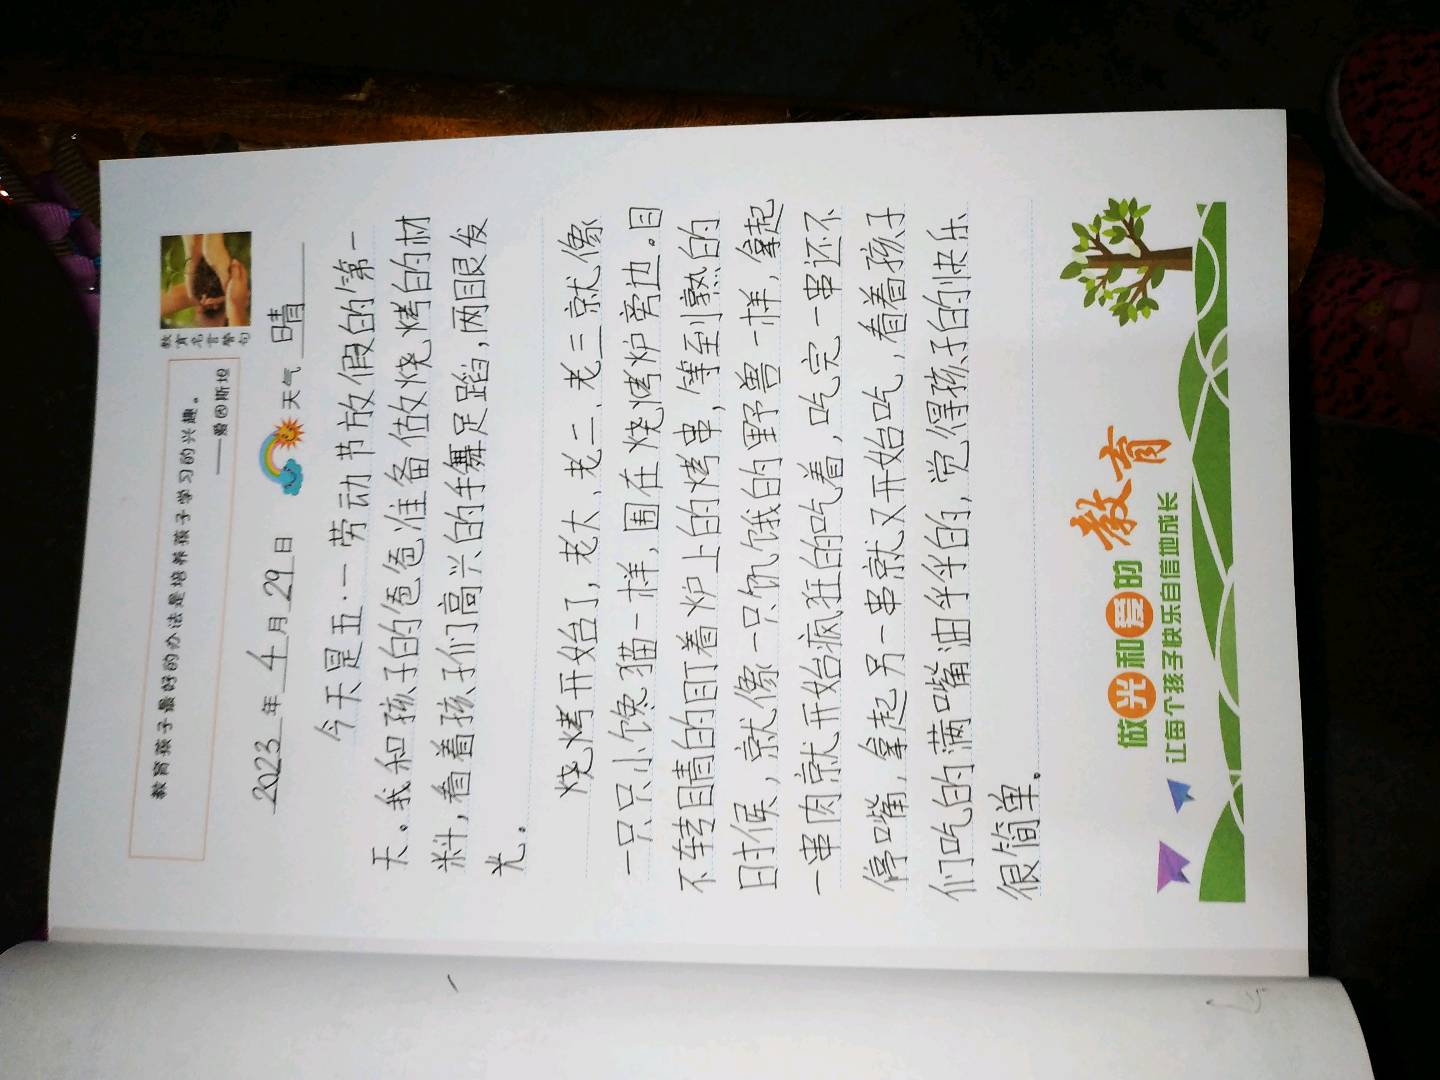 教育名言警句
教育孩子最好的办法是培养孩子学习的兴趣。
——爱因斯坦
2023年4月29日 天气 晴
今天是五·一劳动节放假的第一
天。我和孩子的爸爸准备做烧烤的材
料，看着孩子们高兴的手舞足蹈，两眼发
光。
烧烤开始了，老大、老二、老三就像
一只只小馋猫一样，围在烧烤炉旁边。目
不转睛的盯着炉上的烤串，等到熟的
时候，就像一只饥饿的野兽一样，拿起
一串肉就开始疯狂的吃着，吃完一串还不
停嘴，拿起另一串就又开始吃，看着孩子
们吃的满嘴油乎乎的，觉得孩子的快乐
很简单。
做光和爱的教育
让每个孩子快乐自信地成长